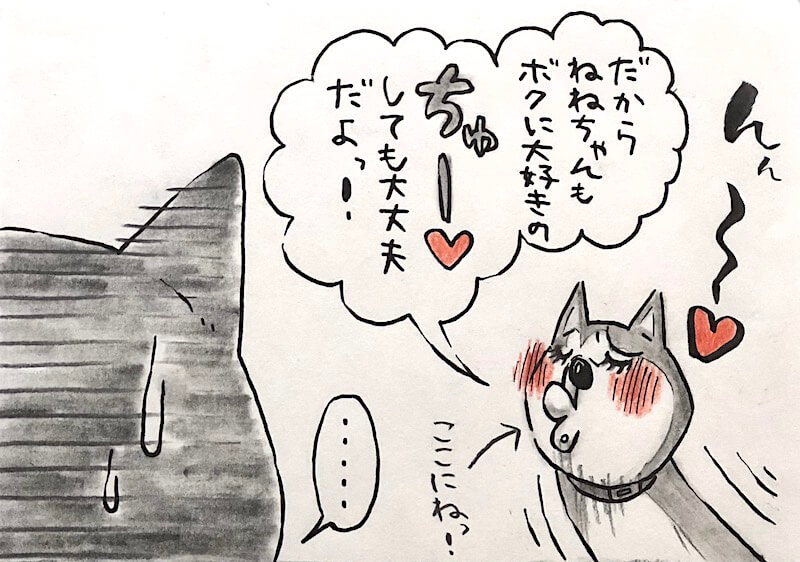 んん〜
だから
ねねちゃんも
ボクに大好きの
ちゅー
しても大丈夫
だよっ！
ここにねっ！
………